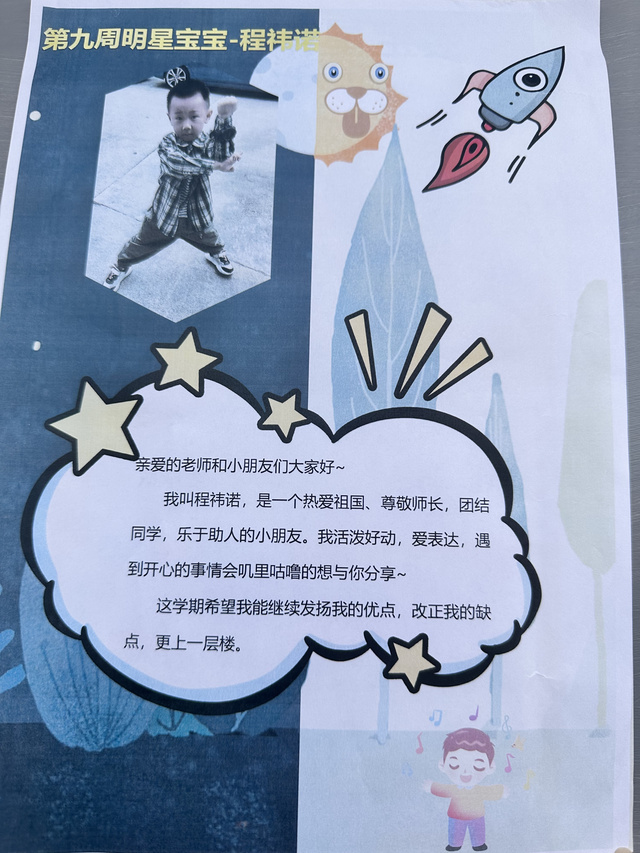 第九周明星宝宝-程祎诺
亲爱的老师和小朋友们大家好~
我叫程祎诺，是一个热爱祖国、尊敬师长，团结
同学，乐于助人的小朋友。我活泼好动，爱表达，遇
到开心的事情会叽里咕噜的想与你分享~
这学期希望我能继续发扬我的优点，改正我的缺
点，更上一层楼。